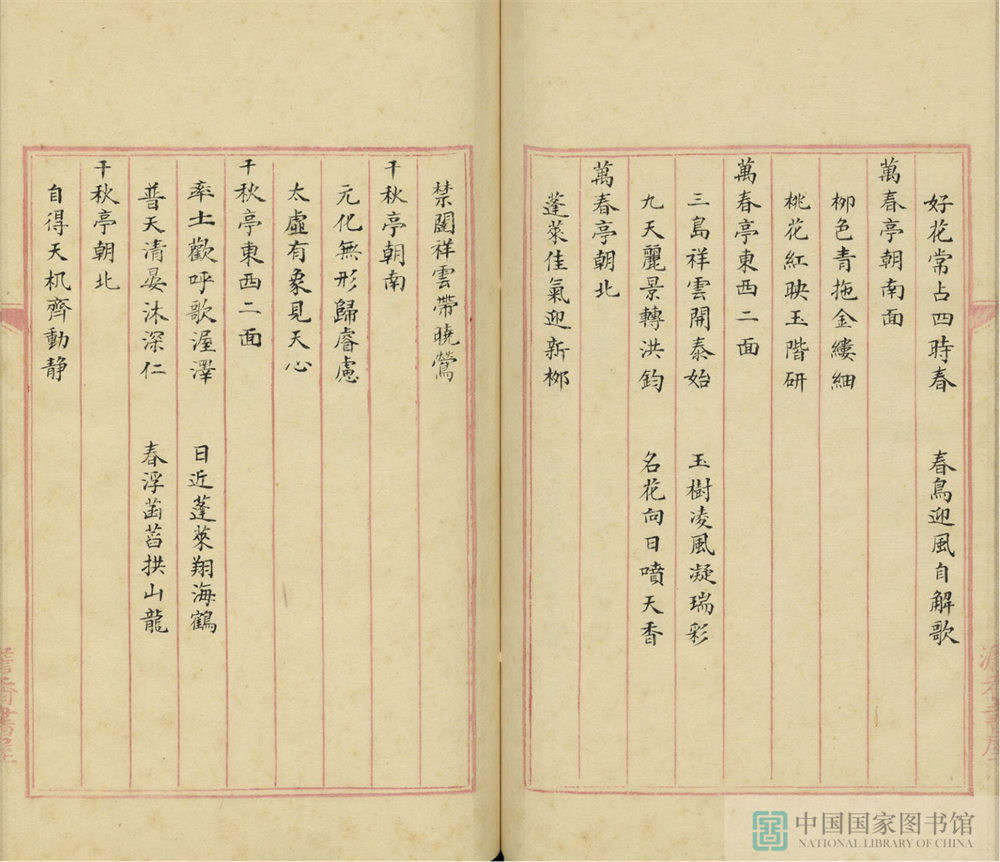 好花常占四時春　春鳥迎風自解歌
萬春亭朝南面
栁色青拖金縷細
桃花紅映玉階研
萬春亭東西二面
三島祥雲開泰始　玉樹凌風凝瑞彩
九天麗景轉洪鈞　名花向日噴天香
萬春亭朝北
蓬萊佳氣迎新栁
禁闥祥雲帶曉鶯
千秋亭朝南
元化無形歸睿慮
太虛有象見天心
千秋亭東西二面
率土歡呼歌渥澤　日近蓬萊翔海鶴
普天清晏沐深仁　春浮菡萏拱山龍
千秋亭朝北
自得天机齊動静
中国国家图书馆
NATIONAL LIBRARY OF CHINA